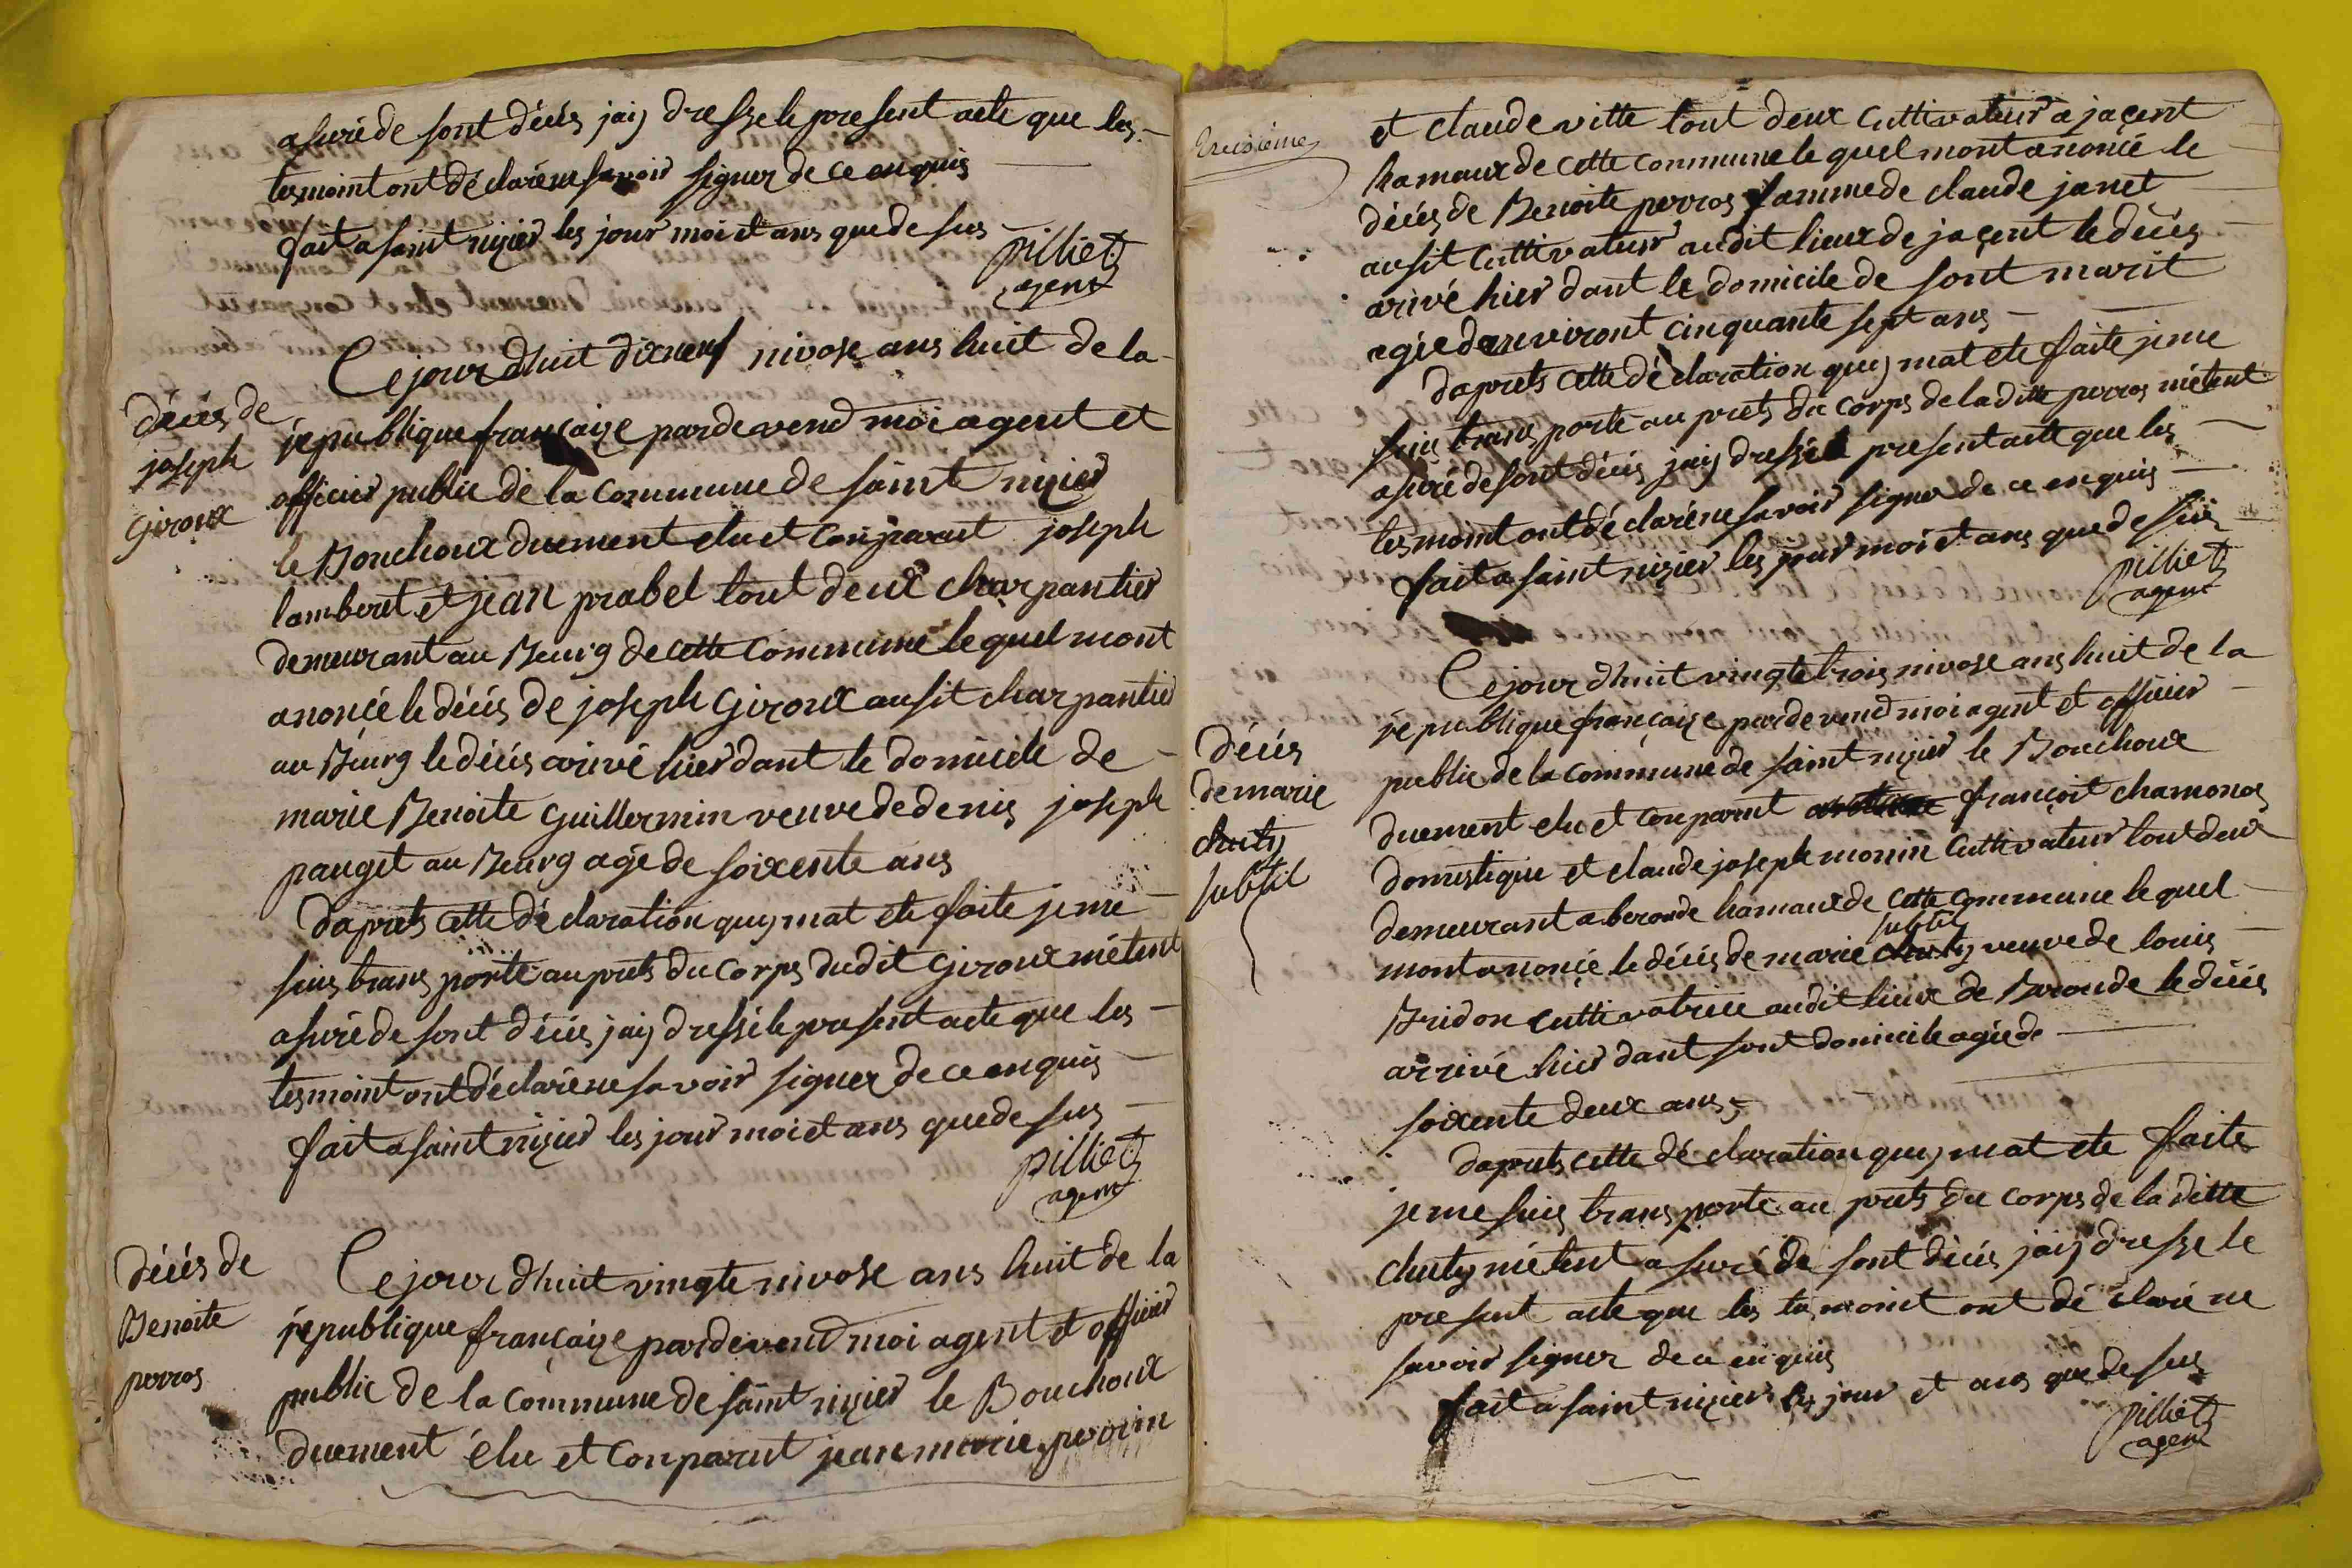 asuré de sont décés jaij dresse le present acte que les
tesmoint ont déclaré ne savoir signer de ce enquis
fait a saint nizier les jour moi et ans que de sus
pilliet
agent
Ce jour dhuit dixneuf nivose ans huit de la
décés de
joseph
Giroux
république françaize pardevend moi agent et
officier public de la commune de saint nizier
le Bouchoux duement elu et conparut joseph
lamberet et jean prabel tout deux charpantier
demeurant au Bourg de cette commune le quel mont
anoncé le décés de joseph Giroux ausit charpantier
au Bourg le décés arivé hier dant le domicile de
marie Benoite Guillermin veuve de denis joseph
pauget au Bourg agé de soixente ans
daprets cette déclaration quij mat ete faite je me
suis trans porte au prets du corps dudit Giroux métent
asuré de sont décés jaij dressé le present acte que les
tesmoint ont déclaré ne savoir signer de ce enquis
fait a saint nizier les jour moi et ans que de sus
pilliet
agent
décés de
Benoite
perros
Ce jour dhuit vingte nivose ans huit de la
république françaize pardevend moi agent et officier
public de la commune de saint nizier le Bouchoux
duement élu et conparut jean marie perrin
troisième
et claude vitte tout deux cuttivateur a jaçent
hamaux de cette commune le quel mont anoncé le
décés de Benoite perros famme de claude janet
ausit cuttivateur audit lieux de jaçent le décés
arivé hier dant le domicile de sont marit
agée danviront cinquante sept ans
daprets cette déclaration quij mat ete faite je me
suis trans porte au prets du corps de la ditte perros métent
asuré de sont décés jaij dressé le present acte que les
tesmoint ont déclaré ne savoir signer de ce enquis
fait a saint nizier les jour moi et ans que de sus
pilliet
agent
Ce jour dhuit vingte trois nivose ans huit de la
république françaize pardevend moi agent et officier
décés
de marie
chuty
subtil
public de la commune de saint nizier le Bouchoux
duement elu et conparut françoit chamonos
domestique et claude joseph monin cuttivateur tout deux
demeurant a beronde hamaux de cette commune le quel
subtil
mont anonçé le décés de marie chuty veuve de louis
Bridon cuttivatrice audit lieux de Beronde le décés
arrivé hier dant sont domicile agée de
soixente deux ans
daprets cette déclaration quij mat ete faite
je me suis trans porte au prets du corps de la ditte
chuty métent asuré de sont décés jaij dresse le
present acte que les tesmoint ont déclaré ne
savoir signer de ce enquis
fait a saint nizier les jour et ans que de sus
pilliet
agent